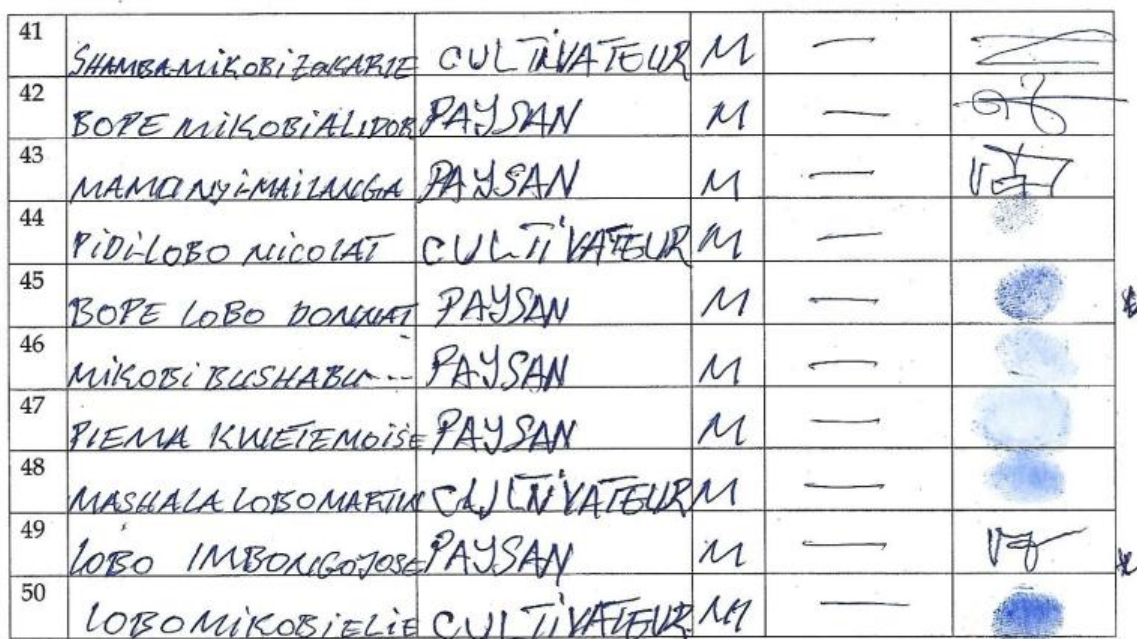 41 SHAMBA MIKOBI ZAKARIE CULTIVATEUR M —
42 BOPE MIKOBI ALIDOR PAYSAN M —
43 MAMANYI-MAILANGA PAYSAN M —
44 PIDI-LOBO NICOLAT CULTIVATEUR M —
45 BOPE LOBO DONNAT PAYSAN M —
46 MIKOBI BUSHABU -- PAYSAN M —
47 PIEMA KWETE MOISE PAYSAN M —
48 MASHALA LOBO MARTIN CULTIVATEUR M —
49 LOBO IMBONGO JOSE PAYSAN M —
50 LOBO MIKOBI ELIE CULTIVATEUR M —